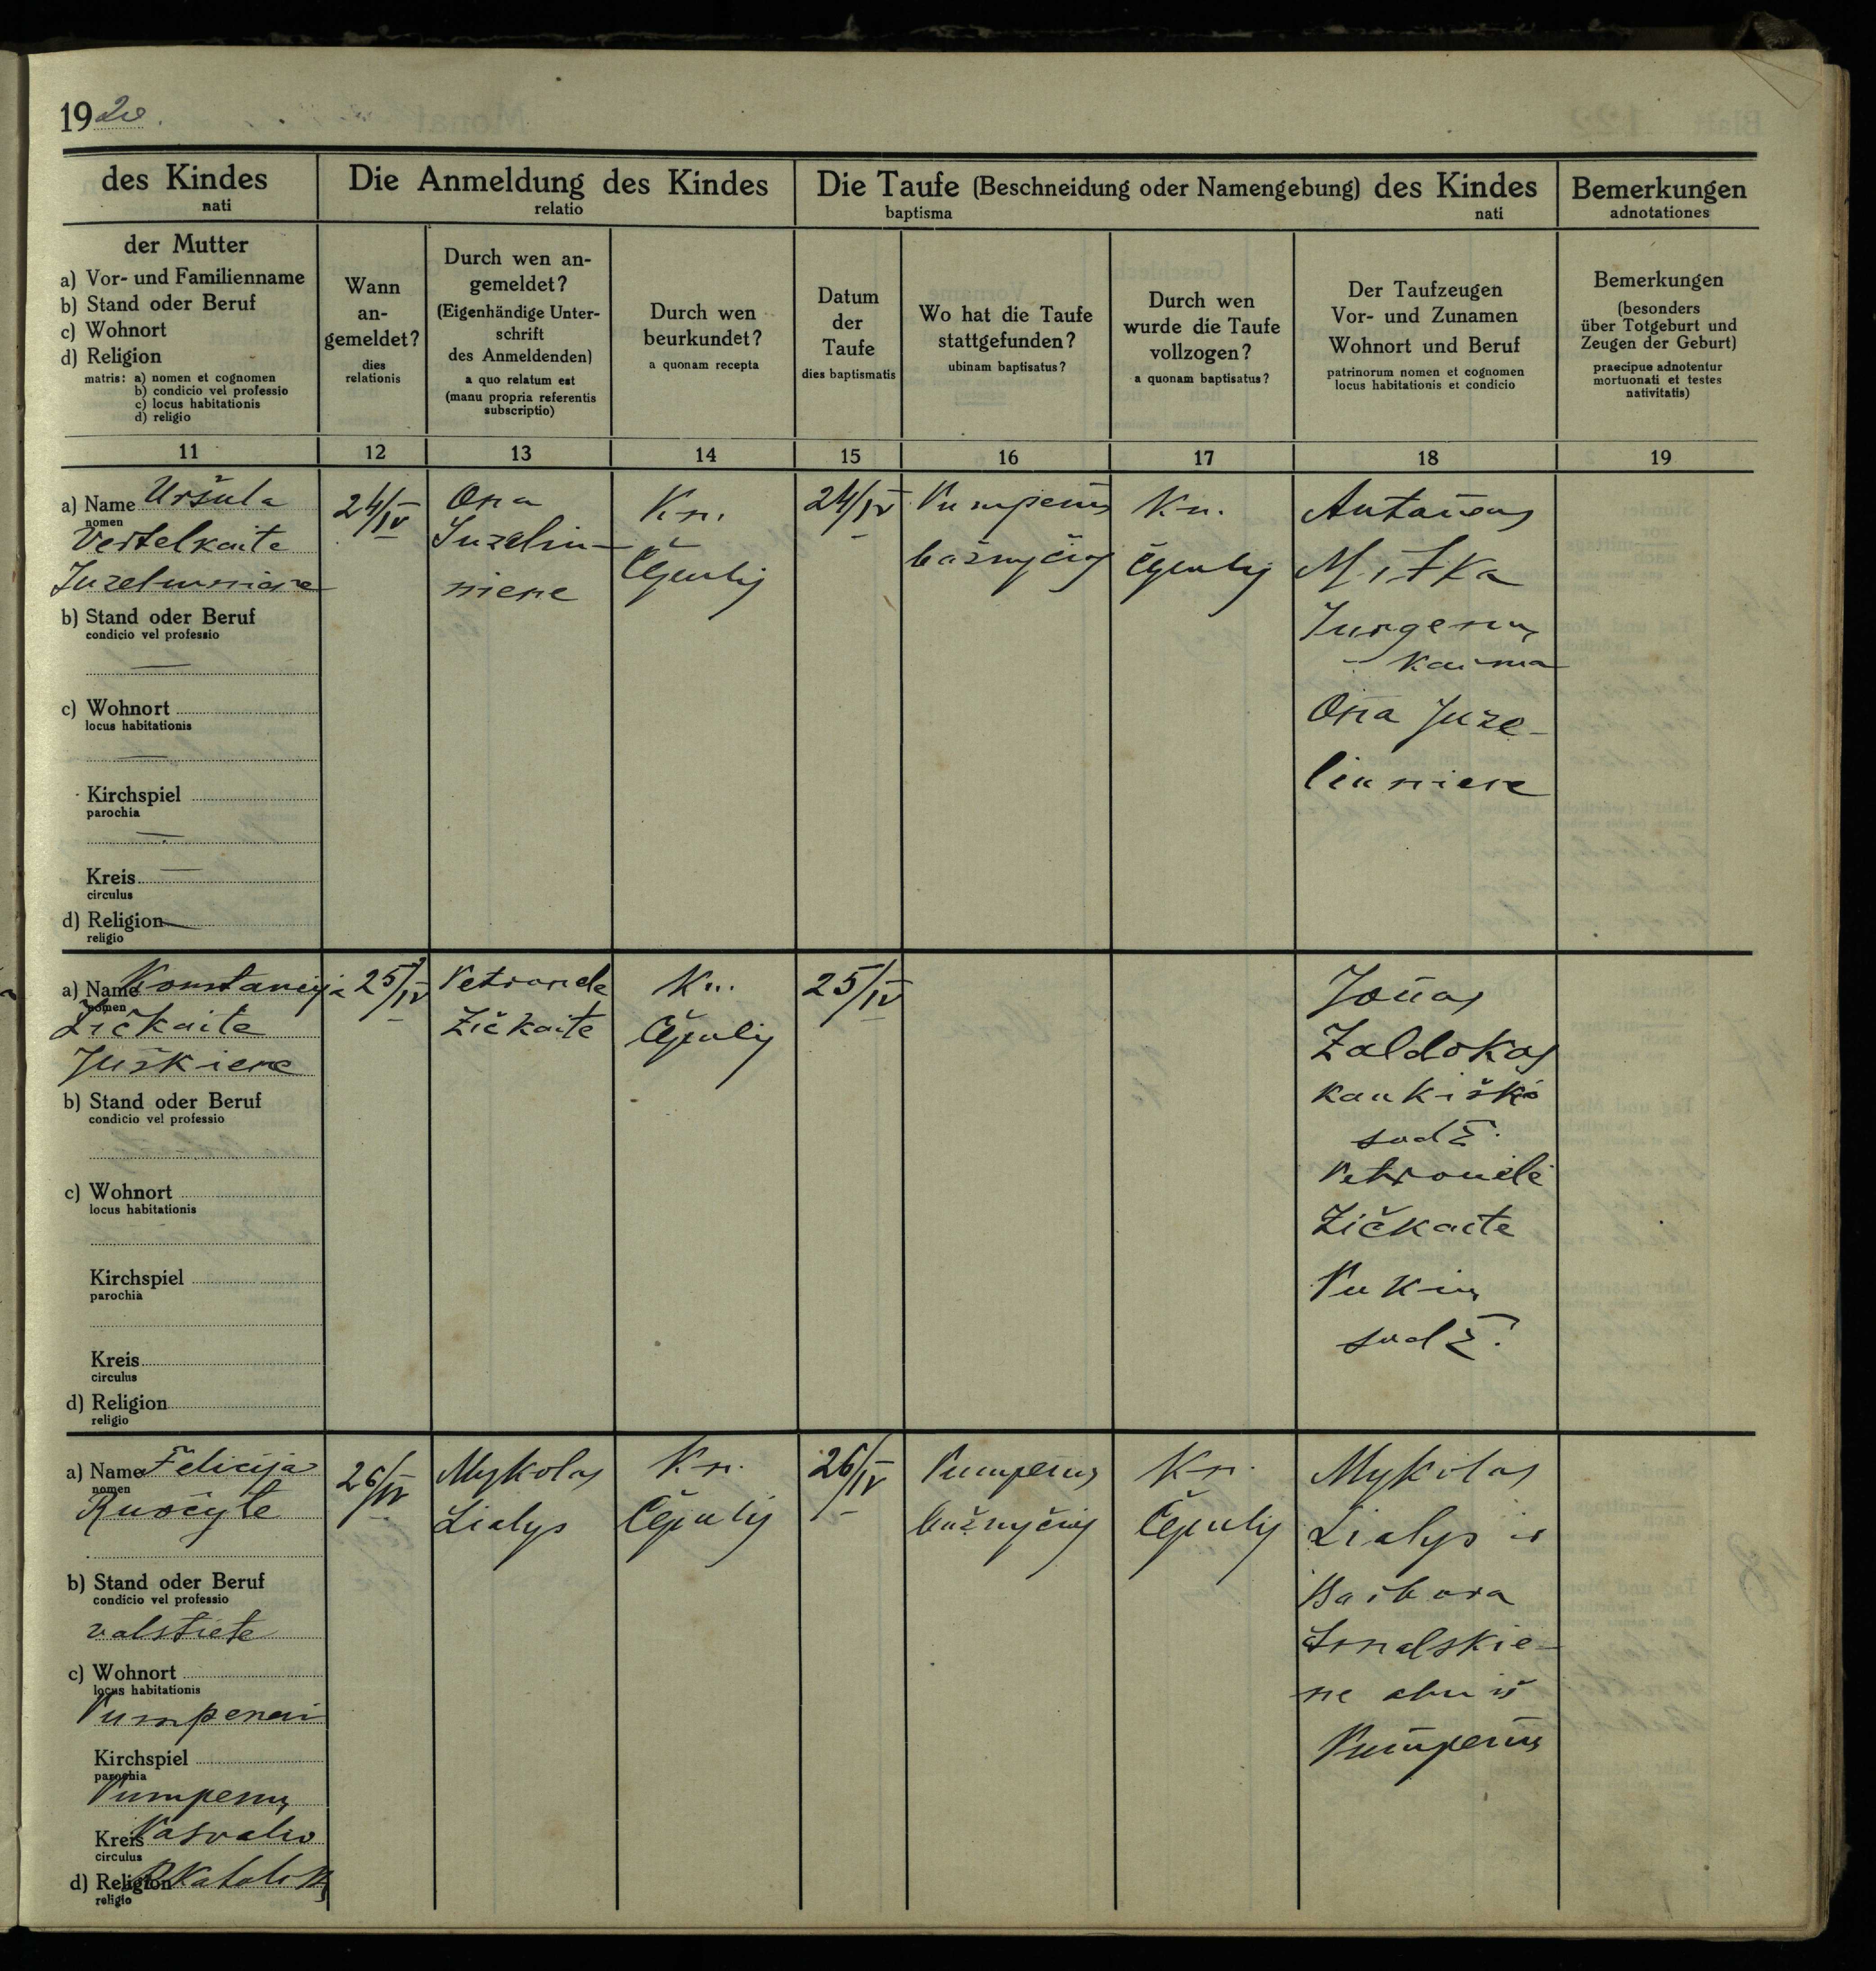 1920.
des Kindes
nati
Die Anmeldung des Kindes
relatio
Die Taufe (Beschneidung oder Namengebung) des Kindes
baptisma nati
Bemerkungen
adnotationes
der Mutter
a) Vor- und Familienname
b) Stand oder Beruf
c) Wohnort
d) Religion
matris: a) nomen et cognomen
b) condicio vel professio
c) locus habitationis
d) religio
Wann
an-
gemeldet?
dies
relationis
Durch wen an-
gemeldet?
(Eigenhändige Unter-
schrift
des Anmeldenden)
a quo relatum est
(manu propria referentis
subscriptio)
Durch wen
beurkundet?
a quonam recepta
Datum
der
Taufe
dies baptismatis
Wo hat die Taufe
stattgefunden?
ubinam baptisatus?
Durch wen
wurde die Taufe
vollzogen?
a quonam baptisatus?
Der Taufzeugen
Vor- und Zunamen
Wohnort und Beruf
patrinorum nomen et cognomen
locus habitationis et condicio
Bemerkungen
(besonders
über Totgeburt und
Zeugen der Geburt)
praecipue adnotentur
mortuonati et testes
nativitatis)
11 12 13 14 15 16 17 18 19
a) Name Uršula
nomen
Vertelkaite
Juzeliuniene
b) Stand oder Beruf
condicio vel professio
—
c) Wohnort
locus habitationis
—
Kirchspiel
parochia
—
Kreis —
circulus
d) Religion —
religio
24/IV
Ona
Juzeliu-
niene
Kn.
Čepulis
24/IV
Pumpenų
bažnyčioj
Kn.
Čepulis
Antanas
Mitka
Jurgenų
kaimo
Ona Juze-
liuniene
a) Name Konstancija
nomen
Žičkaite
Juškiene
b) Stand oder Beruf
condicio vel professio
c) Wohnort
locus habitationis
Kirchspiel
parochia
Kreis
circulus
d) Religion
religio
25/IV
Petronele
Žičkaite
Kn.
Čepulis
25/IV
Jonas
Žaldokas
sodž.
Petronelė
Žičkaite
sodž.
a) Name Felicija
nomen
Ruočyte
b) Stand oder Beruf
condicio vel professio
valstiete
c) Wohnort
locus habitationis
Pumpenai
Kirchspiel
parochia
Pumpenų
Kreis Pasvalio
circulus
d) Religion R Katalikų
religio
26/IV
Mykolas
Lialys
Kn.
Čepulis
26/IV
Pumpenų
bažnyčioj
Kn.
Čepulis
Mykolas
Lialys ir
Barbora
ne abu iš
Pumpenų